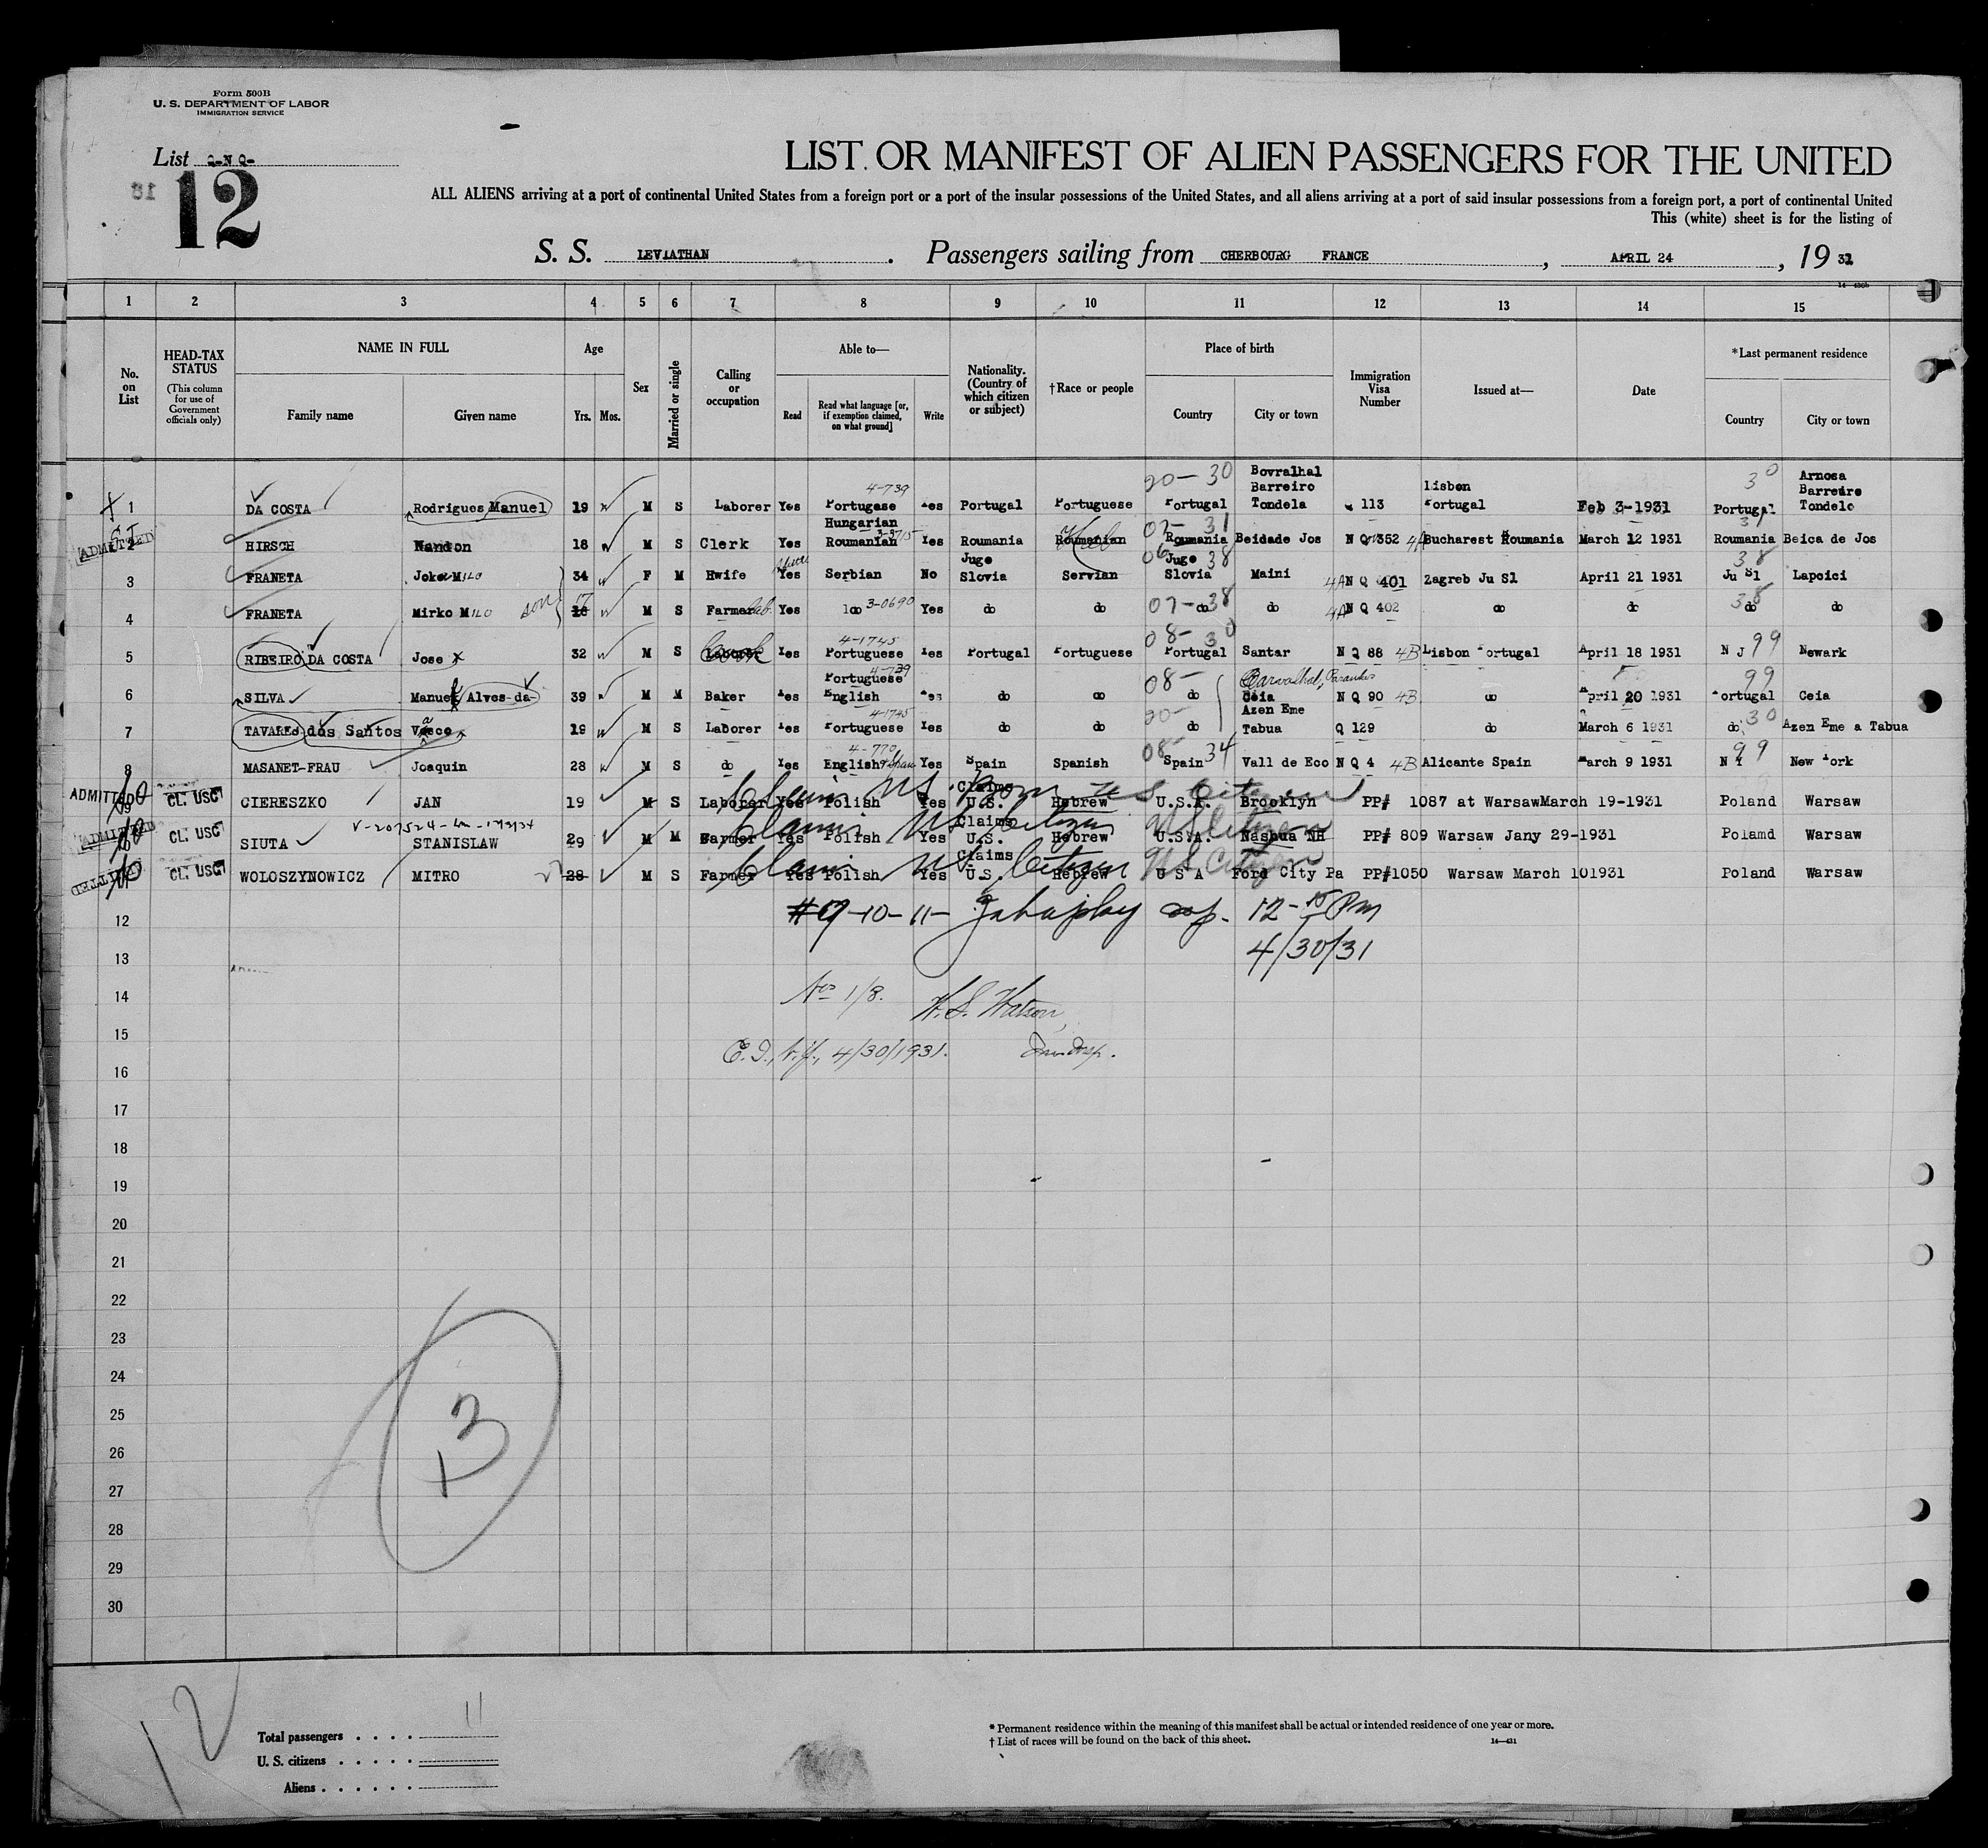 Form 500B
U. S. DEPARTMENT OF LABOR
IMMIGRATION SERVICE
List Q-N Q-
12
LIST OR MANIFEST OF ALIEN PASSENGERS FOR THE UNITED
ALL ALIENS arriving at a port of continental United States from a foreign port or a port of the insular possessions of the United States, and all aliens arriving at a port of said insular possessions from a foreign port, a port of continental United
This (white) sheet is for the listing of
S. S. LEVIATHAN. Passengers sailing from CHERBOURG FRANCE, APRIL 24, 19 31
1 2 3 4 5 6 7 8 9 10 11 12 13 14 15
No. on List
HEAD-TAX STATUS (This column for use of Government officials only)
NAME IN FULL Family name Given name
Age Yrs. Mos.
Sex
Married or single
Calling or occupation
Able to— Read Read what language [or, if exemption claimed, on what ground] Write
Nationality. (Country of which citizen or subject)
†Race or people
Place of birth Country City or town
Immigration Visa Number
Issued at—
Date
*Last permanent residence Country City or town
1 DA COSTA Rodrigues Manuel 19 M S Laborer Yes Portugese 4-739 Yes Portugal Portuguese 20-30 Portugal Bovralhal Barreiro Tondela Q 113 Lisbon Portugal Feb 3-1931 30 Portugal Arnosa Barreiro Tondelo
ADMITTED 2 HIRSCH Nandon 18 M S Clerk Yes Hungarian Roumanian Yes Roumania Roumanian Heb 07-31 Roumania Beidade Jos N Q 352 4A Bucharest Roumania March 12 1931 31 Roumania Beica de Jos
3 FRANETA Joke MILO 34 F M Hwife Yes Serbian No Jugo Slovia Servian 06 38 Jugo Slovia Maini 4A N Q 401 Zagreb Ju Sl April 21 1931 38 Ju Sl Lapcici
4 FRANETA Mirko MILO son 17 16 M S Farmer Lab. Yes do 3-0690 Yes do do 07-38 do do 4A N Q 402 do do 38 do do
5 RIBEIRO DA COSTA Jose X 32 M S Laborer Cook Yes 4-1745 Portuguese Yes Portugal Portuguese 08-30 Portugal Santar N Q 88 4B Lisbon Portugal April 18 1931 N J 99 Newark
6 SILVA Manuel Alves-da- 39 M M Baker Yes Portuguese English 4-739 Yes do do 08- do Ceia N Q 90 4B do April 20 1931 99 Portugal Ceia
7 TAVARES dos Santos Vasco 19 M S Laborer Yes 4-1745 Portuguese Yes do do 20- do Azen Eme Tabua Q 129 do March 6 1931 do 30 Azen Eme a Tabua
8 MASANET-FRAU Joaquin 28 M S do Yes 4-770 English Yes Spain Spanish 08-34 Spain Vall de Eco N Q 4 4B Alicante Spain March 9 1931 99 N Y New York
ADMITTED 9 CL. USC CIERESZKO JAN 19 M S Laborer Yes Polish Yes Claims U.S. Hebrew U.S.A. Brooklyn PP# 1087 at Warsaw March 19-1931 Poland Warsaw
Claims US Born US Citizen
ADMITTED 10 CL. USC SIUTA STANISLAW 29 M M Farmer Yes Polish Yes Claims U.S. Hebrew U.S.A. Nashua NH PP# 809 Warsaw Jany 29-1931 Polamd Warsaw
Claims US Citizen US Citizen
CL. USC WOLOSZYNOWICZ MITRO 28 M S Farmer Yes Polish Yes Claims U.S. Hebrew U S A Ford City Pa PP#1050 Warsaw March 101931 Poland Warsaw
Claims US Citizen US Citizen
12 #9-10-11- insp. 12-15 Pm
13 4/30/31
14 Nos 1/8. W. S. Watson,
15 E. I., N.Y., 4/30/1931. Imm Insp.
16
17
18
19
20
21
22
23
24
25
26
27
28
29
30
13
12
Total passengers . . . . 11
U. S. citizens . . . . .
Aliens . . . . . .
* Permanent residence within the meaning of this manifest shall be actual or intended residence of one year or more.
† List of races will be found on the back of this sheet.
14—431